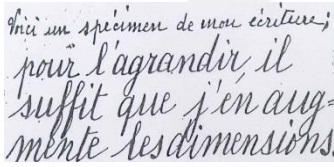 Voici un spécimen de mon écriture;
pour l'agrandir, il
suffit que j'en aug-
mente les dimensions